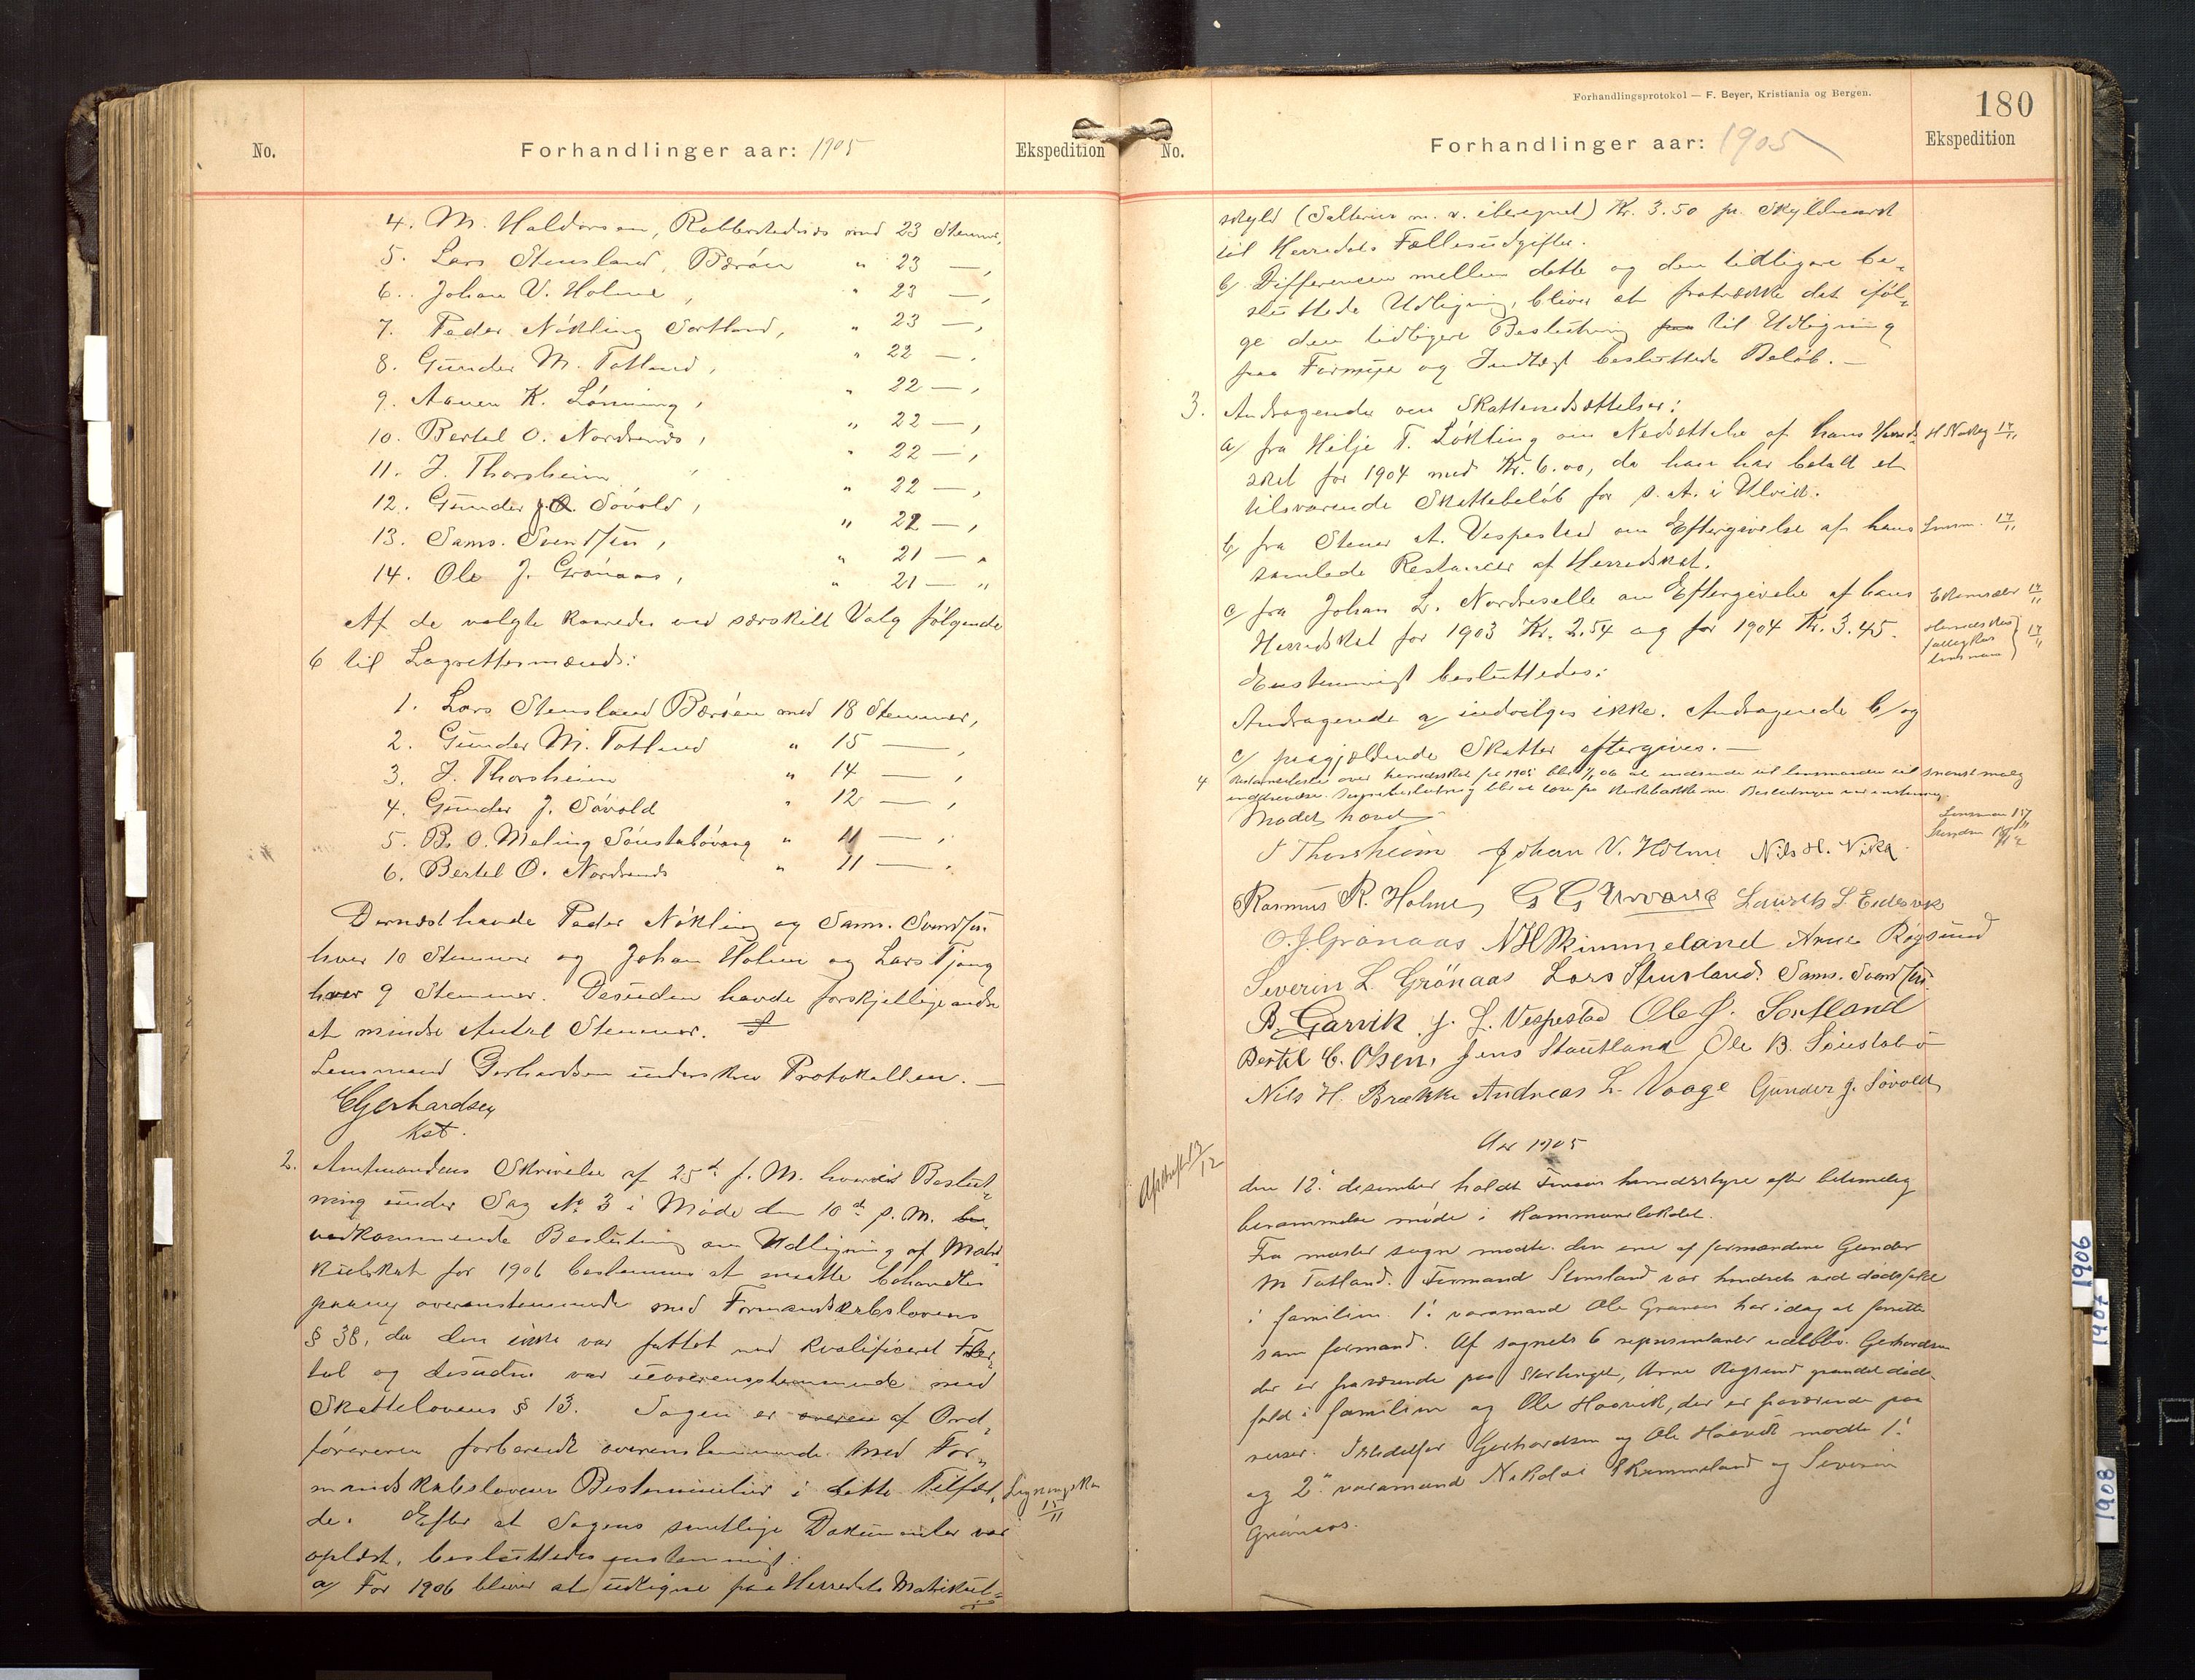 No.
Forhandlinger aar: 1905
Ekspedition
4. M. Haldorsen, Rabbestadnes med 23 Stemmer,
5. Lars Stensland, Børöen " 23 —,
6. Johan V. Holme, " 23 —,
7. Peder Nökling Sortland, " 23 —,
8. Gunder M. Totland, " 22 —,
9. Aamen K. Lönning, " 22 —,
10. Bertel O. Nordrenes, " 22 —,
11. J. Thorsheim, " 22 —,
12. Gunder J. Sövold, " 22 —,
13. Sams. Svendsen, " 22 —,
14. Ole J. Grönaas, " 21 — "
" 21 — "
Af de valgte kaaredes ved særskilt Valg følgende
6 til Lagrettemænd:
1. Lars Stensland Børöen med 18 Stemmer,
2. Gunder M. Totland " 15 —,
3. J. Thorsheim " 14 —,
4. Gunder J. Sövold " 12 —,
5. B. O. Meling Sönstabövaag " 11 —,
6. Bertel O. Nordrenes " 11 —.
Dernæst havde Peder Nökling og Sams. Svendsen
hver 10 Stemmer og Johan Holme og Lars Tjong
hver 9 Stemmer. Desuden havde forskjellige andre
et mindre Antal Stemmer.
Lensmand Gerhardsen underskrev Protokollen. —
EGerhardsen
kst.
2. Amtmandens Skrivelse af 25de f. M. hvorved Beslut-
ning under Sag No 3 i Møde den 10de p. M. be-
vedkommende Beslutning om Udligning af Matri-
kulskat for 1906 bestemmes at maatte behandles
paany overensstemmende med Formandskabslovens
§ 38, da den ikke var fattet med kvalificeret Fler-
tal og desuden var uoverensstemmende med
Skattelovens § 13. Sagen er overen af Ord-
föreren forberedt overensstemmende med For-
mandskabslovens Bestemmelser i dette Tilfæl-
de. Efter at Sagens samtlige Dokumenter var
oplæst, besluttedes enstemmigt:
a/ For 1906 bliver at udligne paa Herredets Matrikul-
Ligningskom
15/11
Forhandlingsprotokol — F. Beyer, Kristiania og Bergen.
180
No.
Forhandlinger aar: 1905
Ekspedition
skyld (Salterier m. v. iberegnet) Kr. 3.50 pr. Skyldmark
til Herredets Fællesudgifter.
b/ Differensen mellem dette og den tidligere be-
sluttede Udligning, bliver at fratrække det iföl-
ge den tidligere Beslutning paa til Udligning
paa Formue og Indtægt besluttede Belöb. —
3. Andragender om Skattenedsættelser:
a/ fra Helje T. Lökling om Nedsættelse af hans Herreds-
skat for 1904 med Kr. 6.00, da han har betalt et
tilsvarende Skattebelöb for s. A. i Ulvik.
b/ fra Stener A. Vespestad om Eftergivelse af hans
samlede Restancer af Herredskat.
c/ fra Johan L. Nordreselle om Eftergivelse af hans
Herredskat for 1903 Kr. 2.54 og for 1904 Kr. 3.45.
17/11
Lensm. 17/11
17/11
Herredskas
17/11
lensmand
Enstemmigt besluttedes:
Andragende a/ indvilges ikke. Andragende b/ og
c/ paagjældende Skatter eftergives. —
4 Restanceliste over herredsskat for 1905 blir 1/1 06 at indsende til lensmanden til snarest mulig
inddrivelse.
Mødet hævet
Lensman 15/11
J Thorsheim Johan V. Holme Nils H. Vika
Rasmus R. Holme G G Urvaag Laurits L. Eidesvik
O. J. Grönaas N H Rimmeland Arne Røgsund
Severin L. Grönaas Lars Stensland. Sams. Svendsen
B. Garvik J. J. Vespestad Ole J. Sortland
Bertel C. Olsen, Jens Stautland Ole B. Sönstabö
Nils H. Brække Andreas L. Vaage Gunder J. Sövold
Afskrift 13/12
Aar 1905
den 12. desember holdt Finaas herredsstyre efter betimelig
berammelse møde i Kommunelokalet.
Fra møster sogn mødte: den ene af formændene Gunder
M Totland. Formand Stensland var hindret ved dødsfald
i familien. 1. varamand Ole Grønaas har idag at forrette
som formand. Af sognets 6 repræsentanter udeblev: Gerhardsen
der er fraværende paa Stortinget, Arne Røgsund grundet døds-
fald i familien og Ole Haavik, der er fraværende paa
reiser. Istedetfor Gerhardsen og Ole Haavik mødte 1.
og 2. varamand Nikolai Rimmeland og Severin
Grønaas.
1906
1907
1908